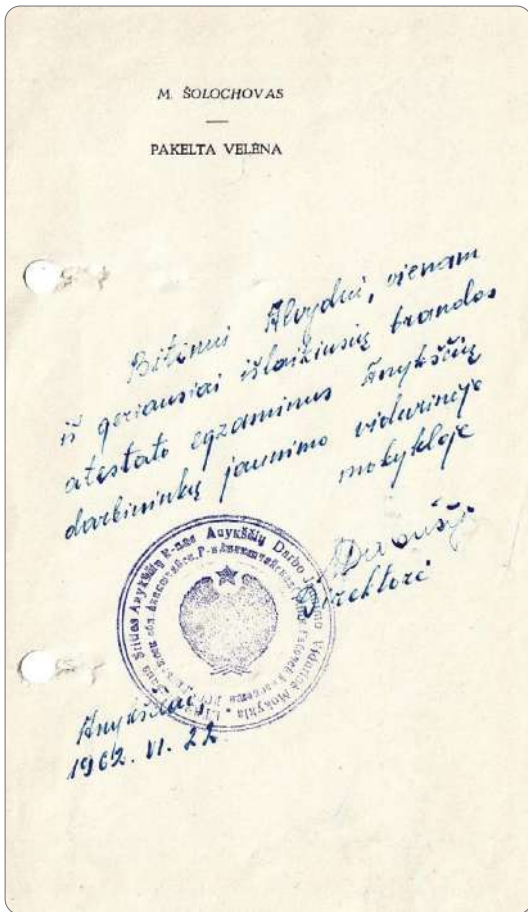 M. ŠOLOCHOVAS
PAKELTA VELĖNA
Bitinui Alvydui, vienam
iš geriausiai išlaikiusių brandos
atestato egzaminus Anykščių
darbininkų jaunimo vidurinėje
mokykloje
Direktorė
Anykščių R-nas Anykščių Darbo Vidurinė Mokykla
Anykščiai,
1962. VI. 22.